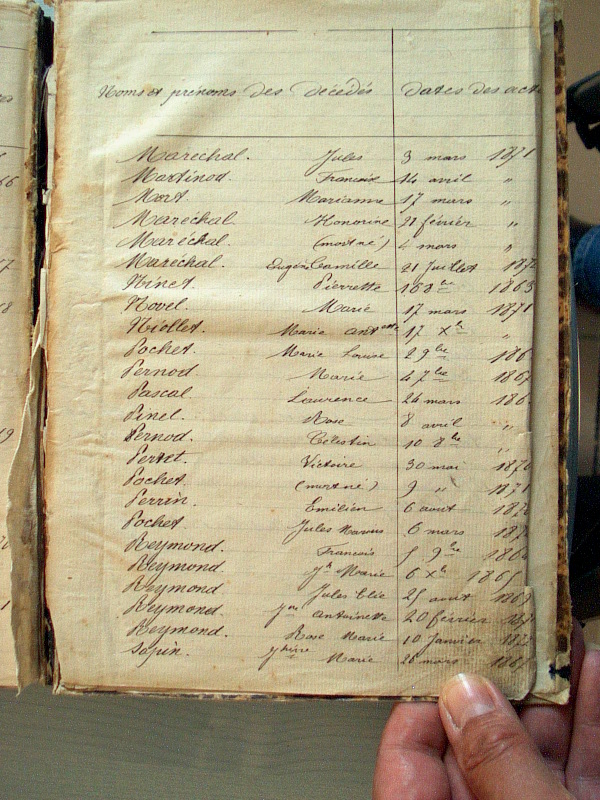 Noms et prénoms des décédés Dates des act
Maréchal. Jules 3 mars 1871
Martinod. François 14 avril "
Mort. Marianne 17 mars "
Maréchal Honorine 21 février "
Maréchal. (mort né) 4 mars "
Maréchal. Eugène Camille 21 Juillet 187
Ninet. Pierrette 16 8bre 1863
Novel. Marie 17 mars 1871
Niollet. Marie Antette 17 Xbre "
Pochet. Marie Louise 2 9bre 186
Pernod. Marie 4 7bre 186
Pascal Laurence 24 mars 186
Pinel. Rose 8 avril "
Pernod. Célestin 10 8bre "
Pertet. Victoire 30 mai 187
Pochet. (mort né) 9 " 1871
Perrin. Emilien 6 août 187
Pochet Jules 6 mars 187
Reymond. François 9bre 186
Reymond Jh Marie 6 Xbre 186
Reymond Jules Elie 25 août 186
Reymond. Antoinette 20 février 187
Reymond. Rose Marie 10 Janvier 187
Sapin. Marie 26 mars 186